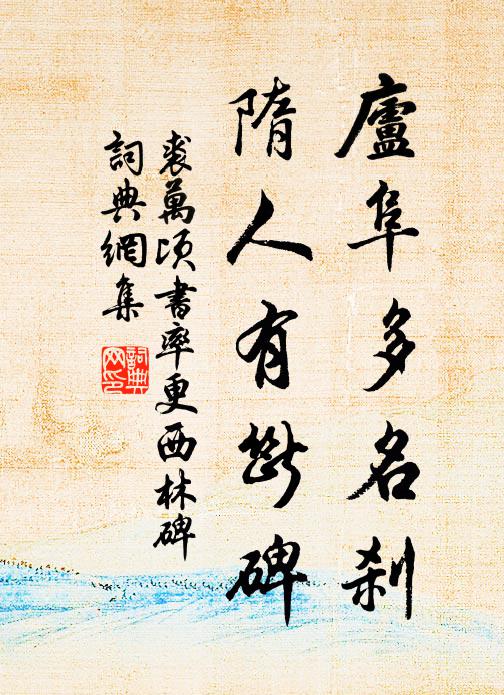 廬阜多名刹
隋人有斷碑
裘萬頃書率更西林碑
詞典網集
詞典
網印